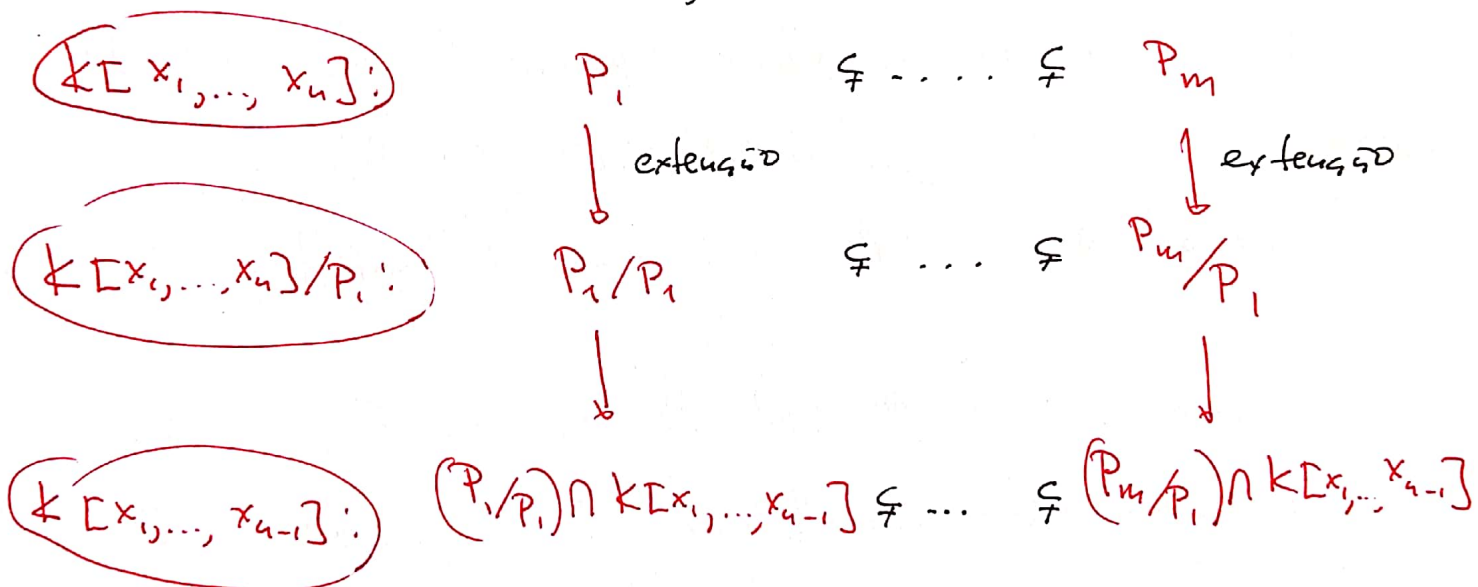 k[x₁,..., xₙ]: P₁ ⊊ .... ⊊ Pₘ
extenção extenção
k[x₁,...,xₙ]/P₁: P₁/P₁ ⊊ ... ⊊ Pₘ/P₁
k[x₁,..., xₙ₋₁]: (P₁/P₁)∩ k[x₁,...,xₙ₋₁] ⊊ ... ⊊ (Pₘ/P₁)∩ k[x₁,...,xₙ₋₁]